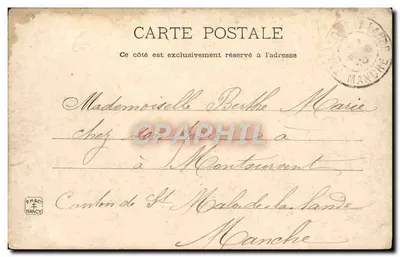 CARTE POSTALE
Ce côté est exclusivement réservé à l'adresse
MANCHE
Mademoiselle Berthe Marie
chez à
à Montoursent
Canton de St Malo de la lande
Manche
NANCY